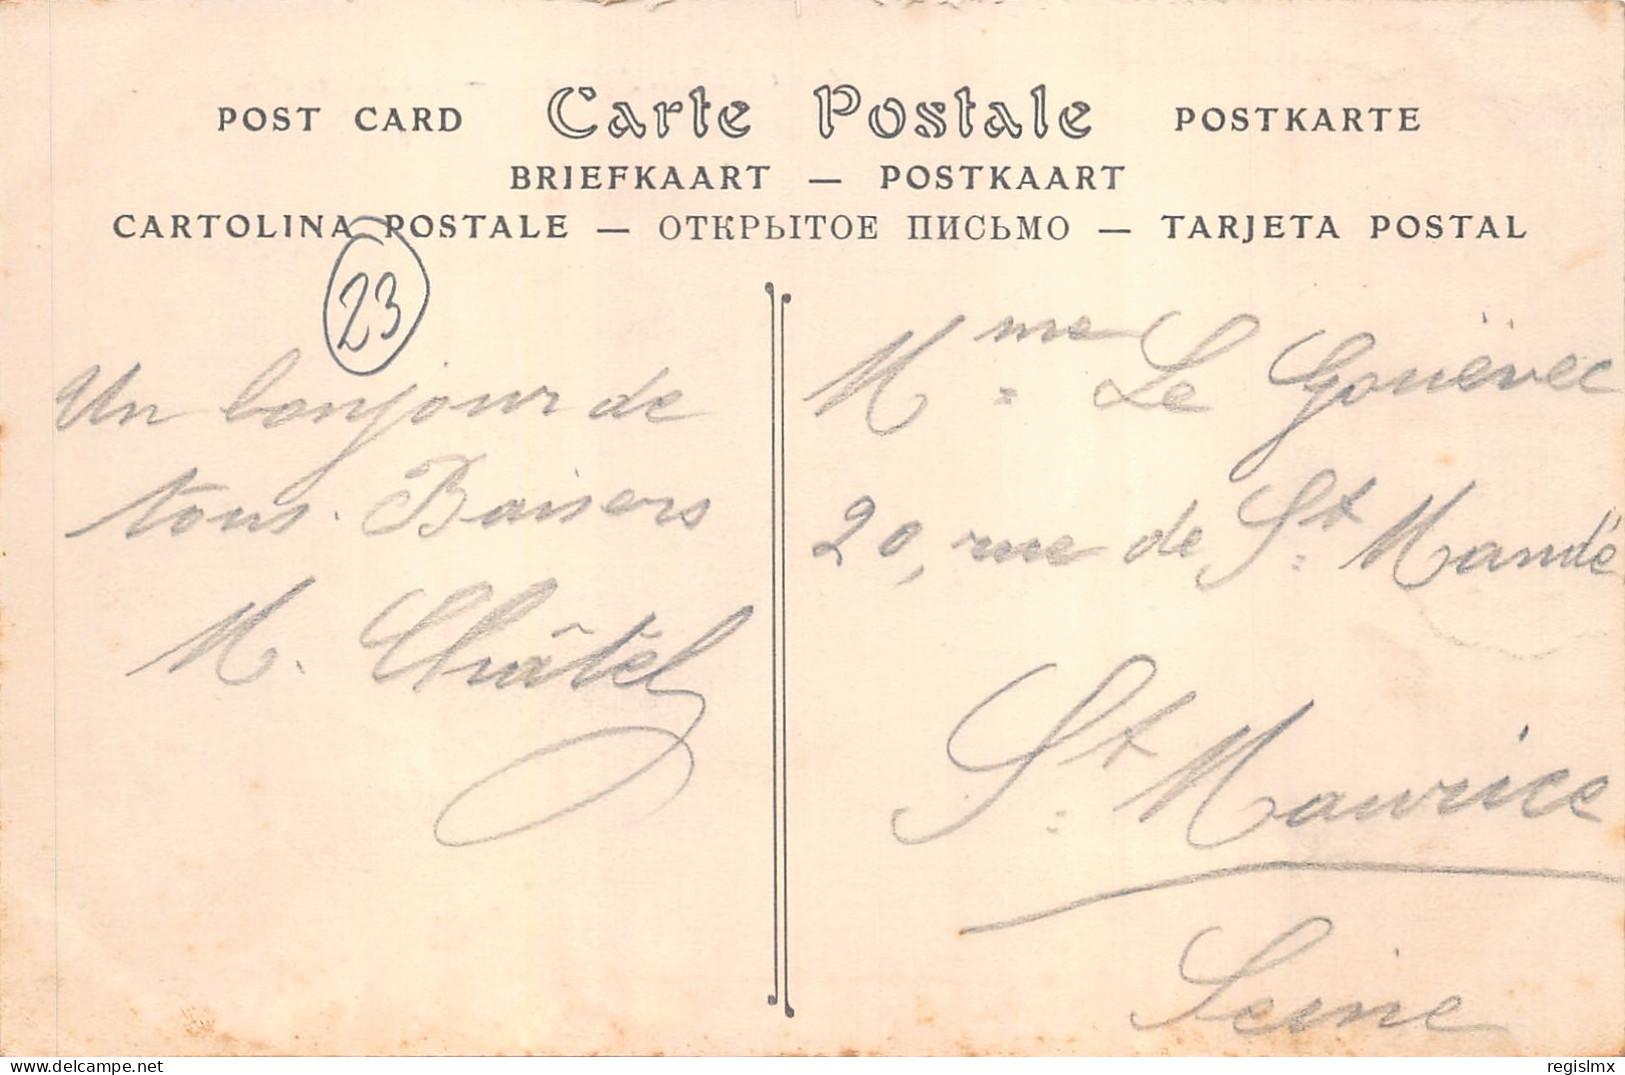 POST CARD Carte Postale POSTKARTE
BRIEFKAART — POSTKAART
CARTOLINA POSTALE — ОТКРЫТОЕ ПИСЬМО — TARJETA POSTAL
23
Un bonjour de
tous. Baisers
M. Châtel
Mme Le Gouëvec
20, rue de St Mandé
St Maurice
Seine
regislmx